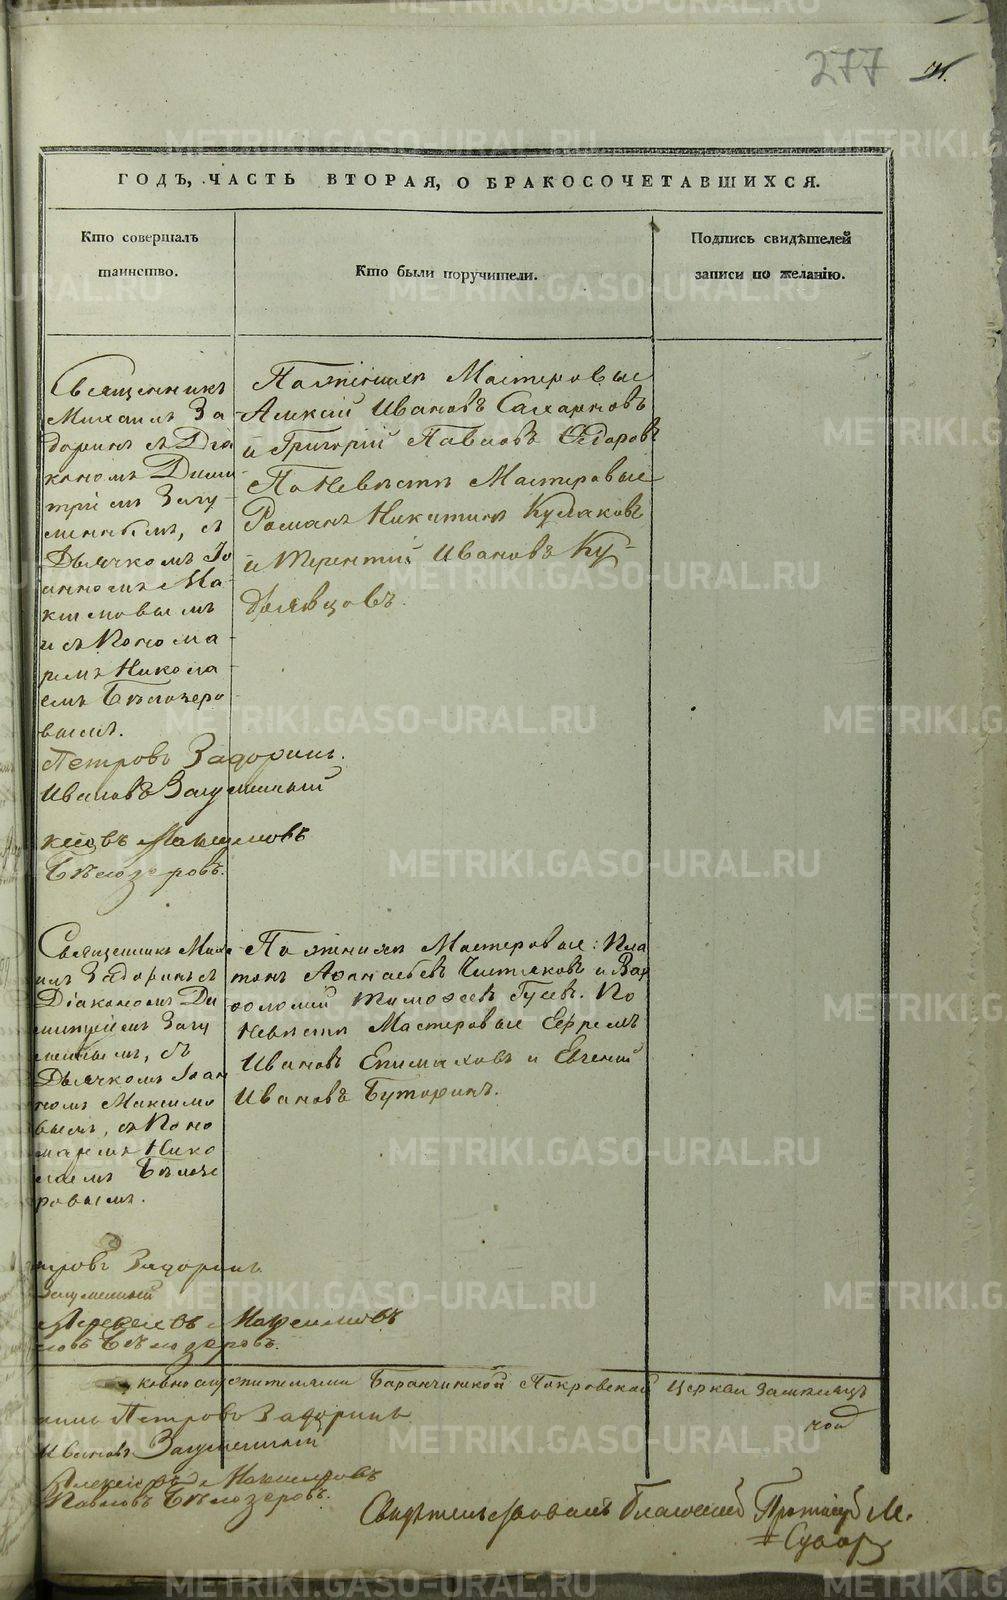 277
ГОДЪ, ЧАСТЬ ВТОРАЯ, О БРАКОСОЧЕТАВШИХСЯ.
Кто совершалъ
таинство.
Кто были поручители.
Подпись свидѣтелей
записи по желанію.
Священникъ
Михаилъ За
доринъ съ Діа
кономъ Дими
тріемъ Загу-
меннымъ, съ
Дьячкомъ Іо
анномъ Ма-
ксимовымъ
и съ Понома-
ремъ Никола
емъ Бѣлозеро
вымъ.
Петровъ Задоринъ.
Ивановъ Загуменный
Максимовъ
Бѣлозеровъ.
По женихѣ Мастеровые
Алексій Ивановъ Сахаровъ
и Григорій Павловъ Ѳедоровъ
По Невѣстѣ Мастеровые
Романъ Никитинъ Кулаковъ
и Терентій Ивановъ Ку-
дрявцовъ.
Священникъ Миха
илъ Задоринъ съ
Діакономъ Ди
митріемъ Загу
меннымъ, съ
Дьячкомъ Іоан
номъ Максимо
вымъ, съ Поно
маремъ Нико
лаемъ Бѣлозе
ровымъ.
тровъ Задоринъ
Загуменный
Алексѣевъ Максимовъ
ловъ Бѣлозеровъ.
По женихѣ Мастеровые: Пла
тонъ Аѳанасьевъ Чистяковъ и Вар
ѳоломей Тимоѳеевъ Гусевъ. По
Невѣстѣ Мастеровые Ефремъ
Ивановъ Епимаховъ и Евгеній
Ивановъ Буторинъ.
Баранчинской Покровской Церкви
Петровъ Задоринъ
Ивановъ Загуменный
Алексѣевъ Максимовъ
Павловъ Бѣлозеровъ.
Свидѣтельствовалъ Благочинный Протоіерей М.
METRIKI.GASO-URAL.RU